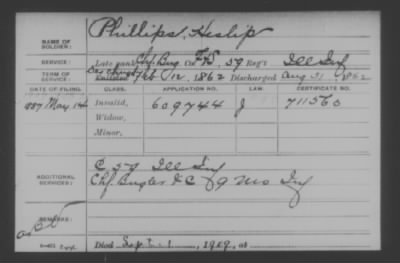 NAME OF SOLDIER: Phillips, Heslip
SERVICE: Late rank, Chf. Bug. Co. F&S, 59 Reg't Ill Inf
TERM OF SERVICE: Enlisted Feb 12, 1862 Discharged Aug 31, 1862
DATE OF FILING. CLASS. APPLICATION NO. LAW. CERTIFICATE NO.
1887 May 14 Invalid, 609744 J 711560
Widow,
Minor,
C 59 Ill Inf
ADDITIONAL SERVICES: Chf. Bugler & C 9 Mo Inf
REMARKS:
Died Sept. 1, 1909, at